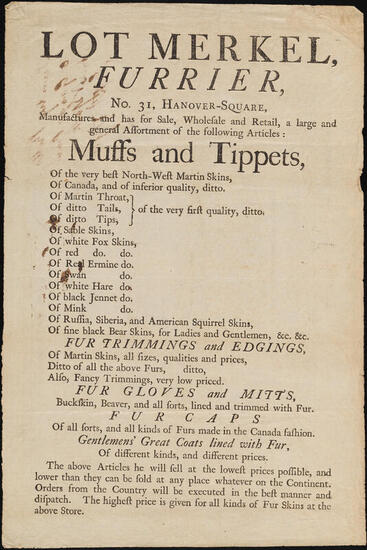 LOT MERKEL,
FURRIER,
No. 31, HANOVER-SQUARE,
Manufactures and has for Sale, Wholesale and Retail, a large and
general Assortment of the following Articles:
Muffs and Tippets,
Of the very best North-West Martin Skins,
Of Canada, and of inferior quality, ditto.
Of Martin Throat,
Of ditto Tails, of the very first quality, ditto.
Of ditto Tips,
Of Sable Skins,
Of white Fox Skins,
Of red do. do.
Of Real Ermine do.
Of Swan do.
Of white Hare do.
Of black Jennet do.
Of Mink do.
Of Russia, Siberia, and American Squirrel Skins,
Of fine black Bear Skins, for Ladies and Gentlemen, &c. &c.
FUR TRIMMINGS and EDGINGS,
Of Martin Skins, all sizes, qualities and prices,
Ditto of all the above Furs, ditto,
Also, Fancy Trimmings, very low priced.
FUR GLOVES and MITTS,
Buckskin, Beaver, and all sorts, lined and trimmed with Fur.
FUR CAPS
Of all sorts, and all kinds of Furs made in the Canada fashion.
Gentlemens' Great Coats lined with Fur,
Of different kinds, and different prices.
The above Articles he will sell at the lowest prices possible, and
lower than they can be sold at any place whatever on the Continent.
Orders from the Country will be executed in the best manner and
dispatch. The highest price is given for all kinds of Fur Skins at the
above Store.